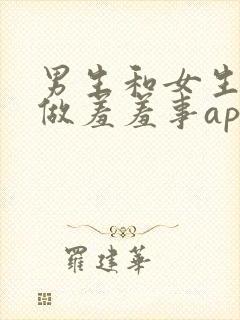 男生和女生
做羞羞事ap
羅建華